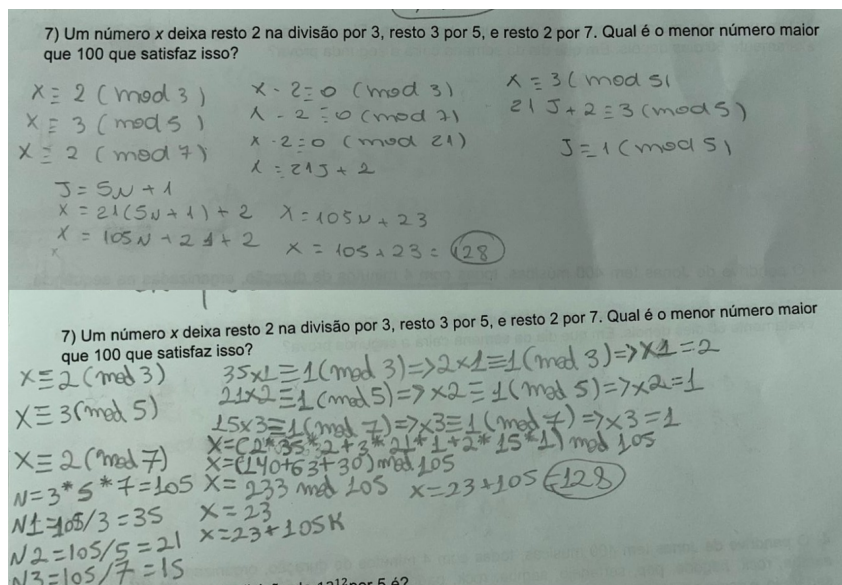 7) Um número x deixa resto 2 na divisão por 3, resto 3 por 5, e resto 2 por 7. Qual é o menor número maior
que 100 que satisfaz isso?
X ≡ 2 (mod 3)
X ≡ 3 (mod 5)
X ≡ 2 (mod 7)
X - 2 ≡ 0 (mod 3)
X - 2 ≡ 0 (mod 7)
X - 2 ≡ 0 (mod 21)
X = 21J + 2
X ≡ 3 (mod 5)
21J + 2 ≡ 3 (mod 5)
J ≡ 1 (mod 5)
J = 5N + 1
X = 21(5N + 1) + 2
X = 105N + 21 + 2
X = 105N + 23
X = 105 + 23 = 128
7) Um número x deixa resto 2 na divisão por 3, resto 3 por 5, e resto 2 por 7. Qual é o menor número maior
que 100 que satisfaz isso?
X ≡ 2 (mod 3)
X ≡ 3 (mod 5)
X ≡ 2 (mod 7)
N = 3*5*7 = 105
N1 = 105/3 = 35
N2 = 105/5 = 21
N3 = 105/7 = 15
35x1 ≡ 1 (mod 3) => 2x1 ≡ 1 (mod 3) => x1 = 2
21x2 ≡ 1 (mod 5) => x2 ≡ 1 (mod 5) => x2 = 1
15x3 ≡ 1 (mod 7) => x3 ≡ 1 (mod 7) => x3 = 1
X = (2*35*2 + 3*21*1 + 2*15*1) mod 105
X = (140 + 63 + 30) mod 105
X = 233 mod 105
X = 23
X = 23 + 105K
X = 23 + 105 = 128
por 5 é?